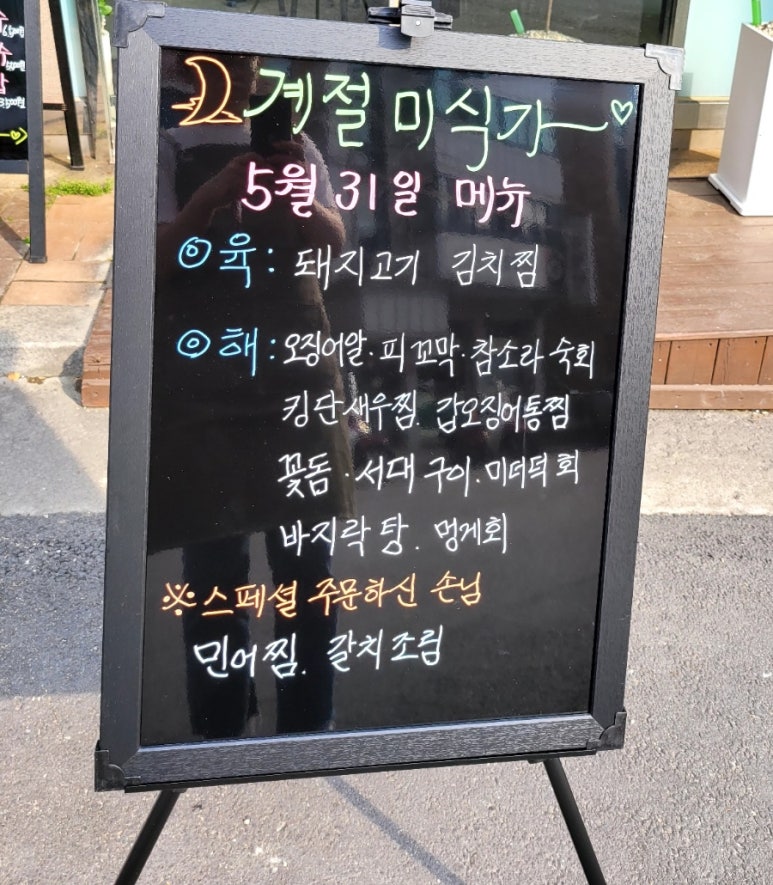 계절 미식가
5월 31일 메뉴
◎ 육 : 돼지고기 김치찜
◎ 해 : 오징어알 · 피꼬막 · 참소라 숙회
킹단새우찜. 갑오징어통찜
꽃돔 · 서대 구이. 미더덕 회
바지락 탕. 멍게회
※ 스페셜 주문하신 손님
민어찜. 갈치조림